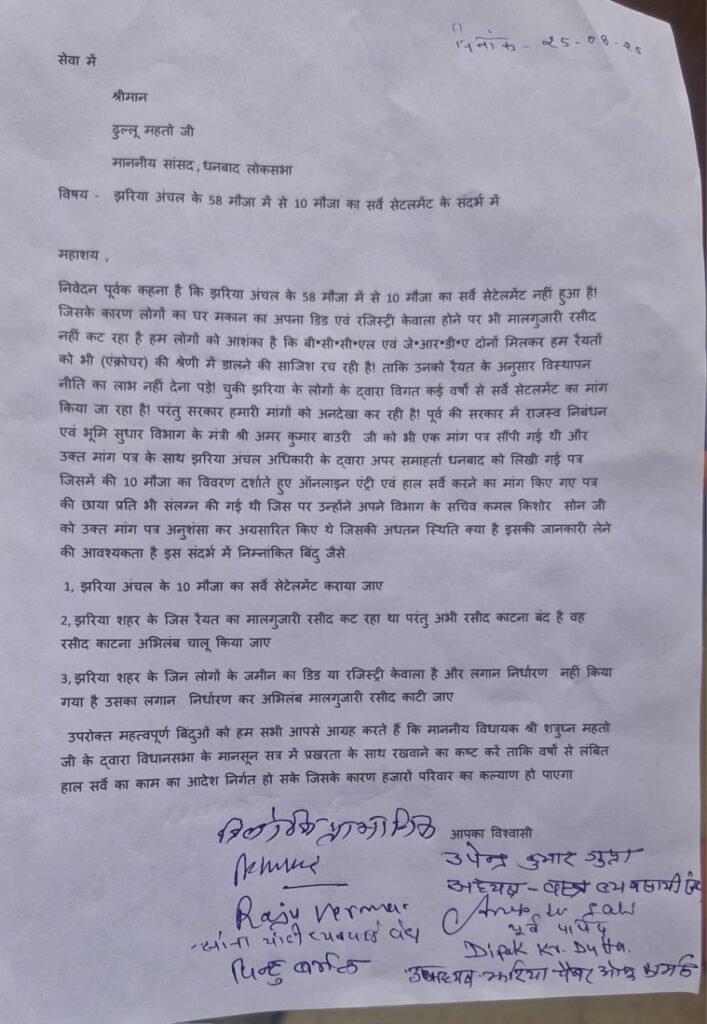 दिनांक - २५ - ०८ - २५
सेवा में
श्रीमान
ढुल्लू महतो जी
माननीय सांसद , धनबाद लोकसभा
विषय - झरिया अंचल के 58 मौजा में से 10 मौजा का सर्वे सेटलमेंट के संदर्भ में
महाशय ,
निवेदन पूर्वक कहना है कि झरिया अंचल के 58 मौजा में से 10 मौजा का सर्वे सेटेलमेंट नहीं हुआ है!
जिसके कारण लोगों का घर मकान का अपना डिड एवं रजिस्ट्री केवाला होने पर भी मालगुजारी रसीद
नहीं कट रहा है हम लोगों को आशंका है कि बी॰सी॰सी॰एल एवं जे॰आर॰डी॰ए दोनों मिलकर हम रैयतों
को भी (एंक्रोचर) की श्रेणी में डालने की साजिश रच रही है! ताकि उनको रैयत के अनुसार विस्थापन
नीति का लाभ नहीं देना पड़े! चुकी झरिया के लोगों के द्वारा विगत कई वर्षो से सर्वे सेटलमेंट का मांग
किया जा रहा है! परंतु सरकार हमारी मांगों को अनदेखा कर रही है! पूर्व की सरकार में राजस्व निबंधन
एवं भूमि सुधार विभाग के मंत्री श्री अमर कुमार बाउरी जी को भी एक मांग पत्र सौंपी गई थी और
उक्त मांग पत्र के साथ झरिया अंचल अधिकारी के द्वारा अपर समाहर्ता धनबाद को लिखी गई पत्र
जिसमें की 10 मौजा का विवरण दर्शाते हुए ऑनलाइन एंट्री एवं हाल सर्वे करने का मांग किए गए पत्र
की छाया प्रति भी संलग्न की गई थी जिस पर उन्होंने अपने विभाग के सचिव कमल किशोर सोन जी
को उक्त मांग पत्र अनुशंसा कर अग्रसारित किए थे जिसकी अधतन स्थिति क्या है इसकी जानकारी लेने
की आवश्यकता है इस संदर्भ में निम्नांकित बिंदु जैसे
1, झरिया अंचल के 10 मौजा का सर्वे सेटेलमेंट कराया जाए
2, झरिया शहर के जिस रैयत का मालगुजारी रसीद कट रहा था परंतु अभी रसीद काटना बंद है वह
रसीद काटना अभिलंब चालू किया जाए
3, झरिया शहर के जिन लोगों के जमीन का डिड या रजिस्ट्री केवाला है और लगान निर्धारण नहीं किया
गया है उसका लगान निर्धारण कर अभिलंब मालगुजारी रसीद काटी जाए
उपरोक्त महत्वपूर्ण बिंदुओं को हम सभी आपसे आग्रह करते हैं कि माननीय विधायक श्री शत्रुघ्न महतो
जी के द्वारा विधानसभा के मानसून सत्र में प्रखरता के साथ रखवाने का कष्ट करें ताकि वर्षो से लंबित
हाल सर्वे का काम का आदेश निर्गत हो सके जिसके कारण हजारों परिवार का कल्याण हो पाएगा
आपका विश्वासी
उपेन्द्र कुमार गुप्ता
अध्यक्ष - वस्त्र व्यवसायी संघ
Raju Verma
पूर्व पार्षद
Dipak Kr. Dutta.
उपाध्यक्ष झरिया चैंबर ऑफ कामर्स